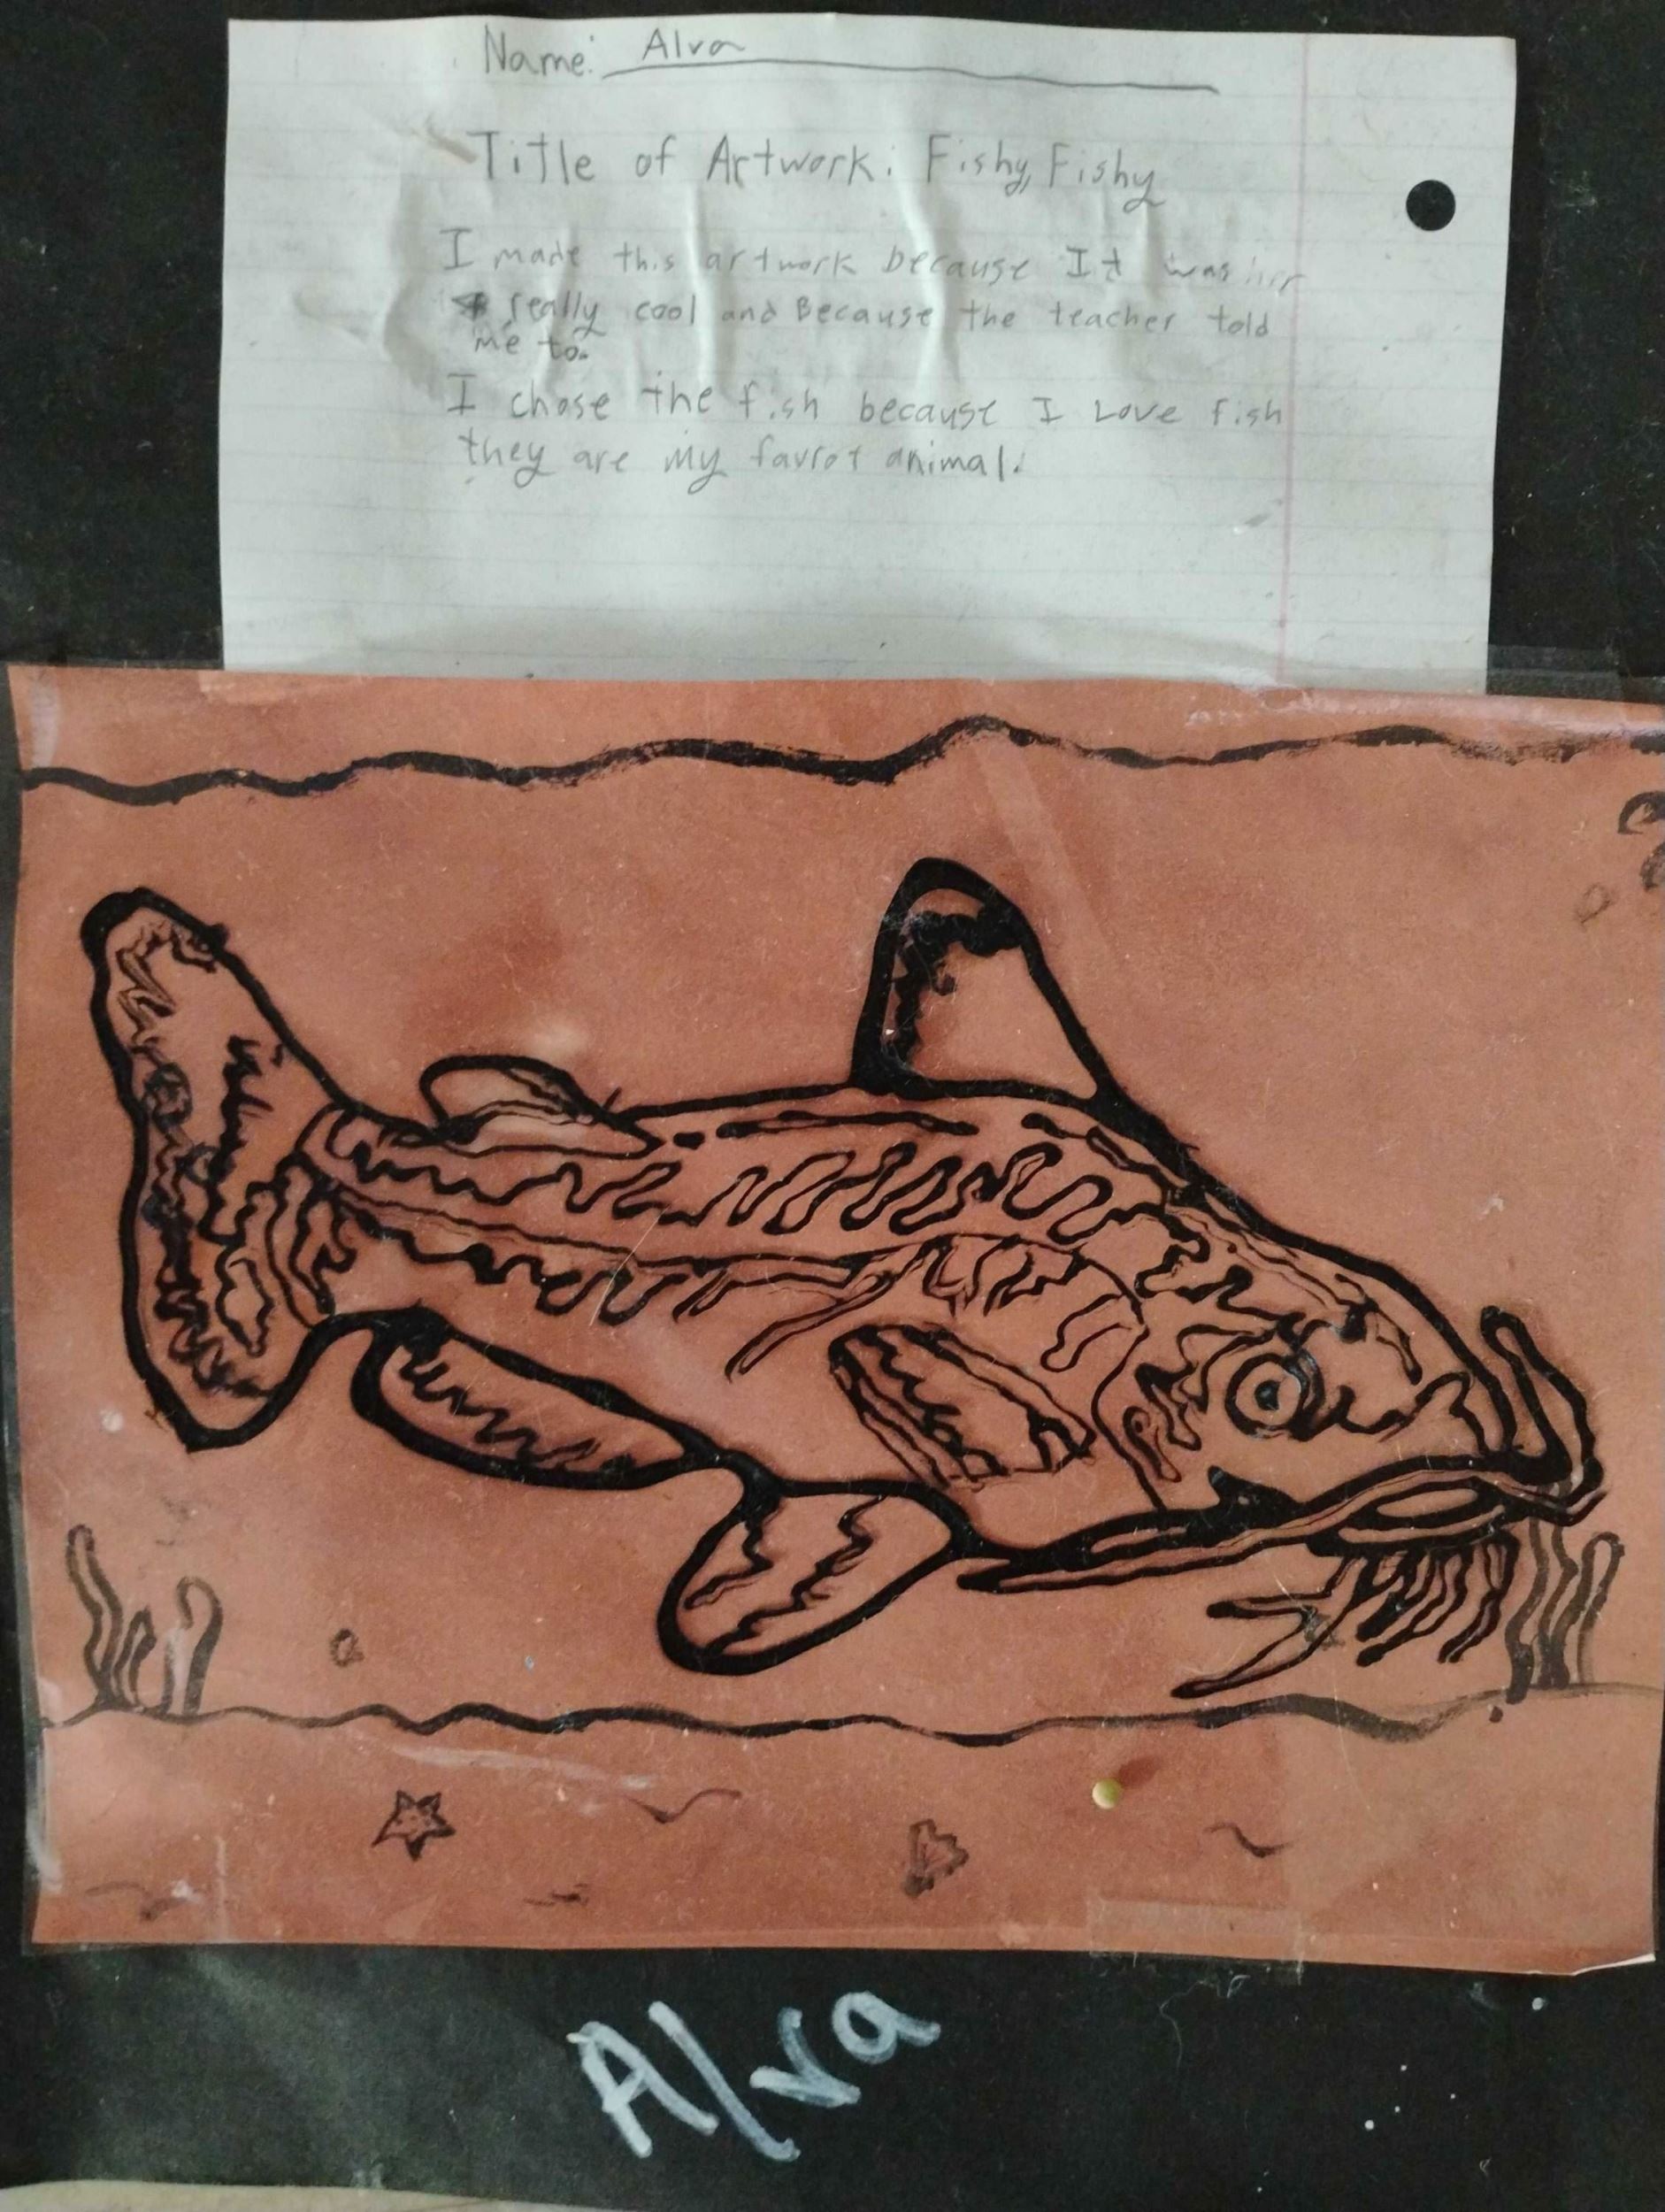 Name: Alva
Title of Artwork: Fishy, Fishy
I made this artwork because It was
really cool and Because the teacher told
me to.
I chose the fish because I Love fish
they are my favrot animal.
Alva